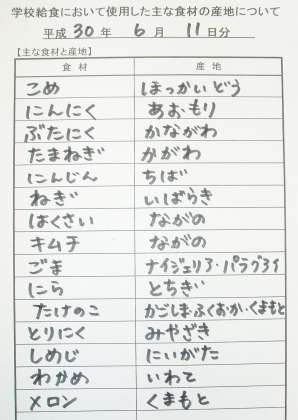 学校給食において使用した主な食材の産地について
平成 30 年 6 月 11 日分
【主な食材と産地】
食材 産地
こめ ほっかいどう
にんにく あおもり
ぶたにく かながわ
たまねぎ かがわ
にんじん ちば
ねぎ いばらき
はくさい ながの
キムチ ながの
ごま ナイジェリア・パラグアイ
にら とちぎ
たけのこ かごしま・ふくおか・くまもと
とりにく みやざき
しめじ にいがた
わかめ いわて
メロン くまもと